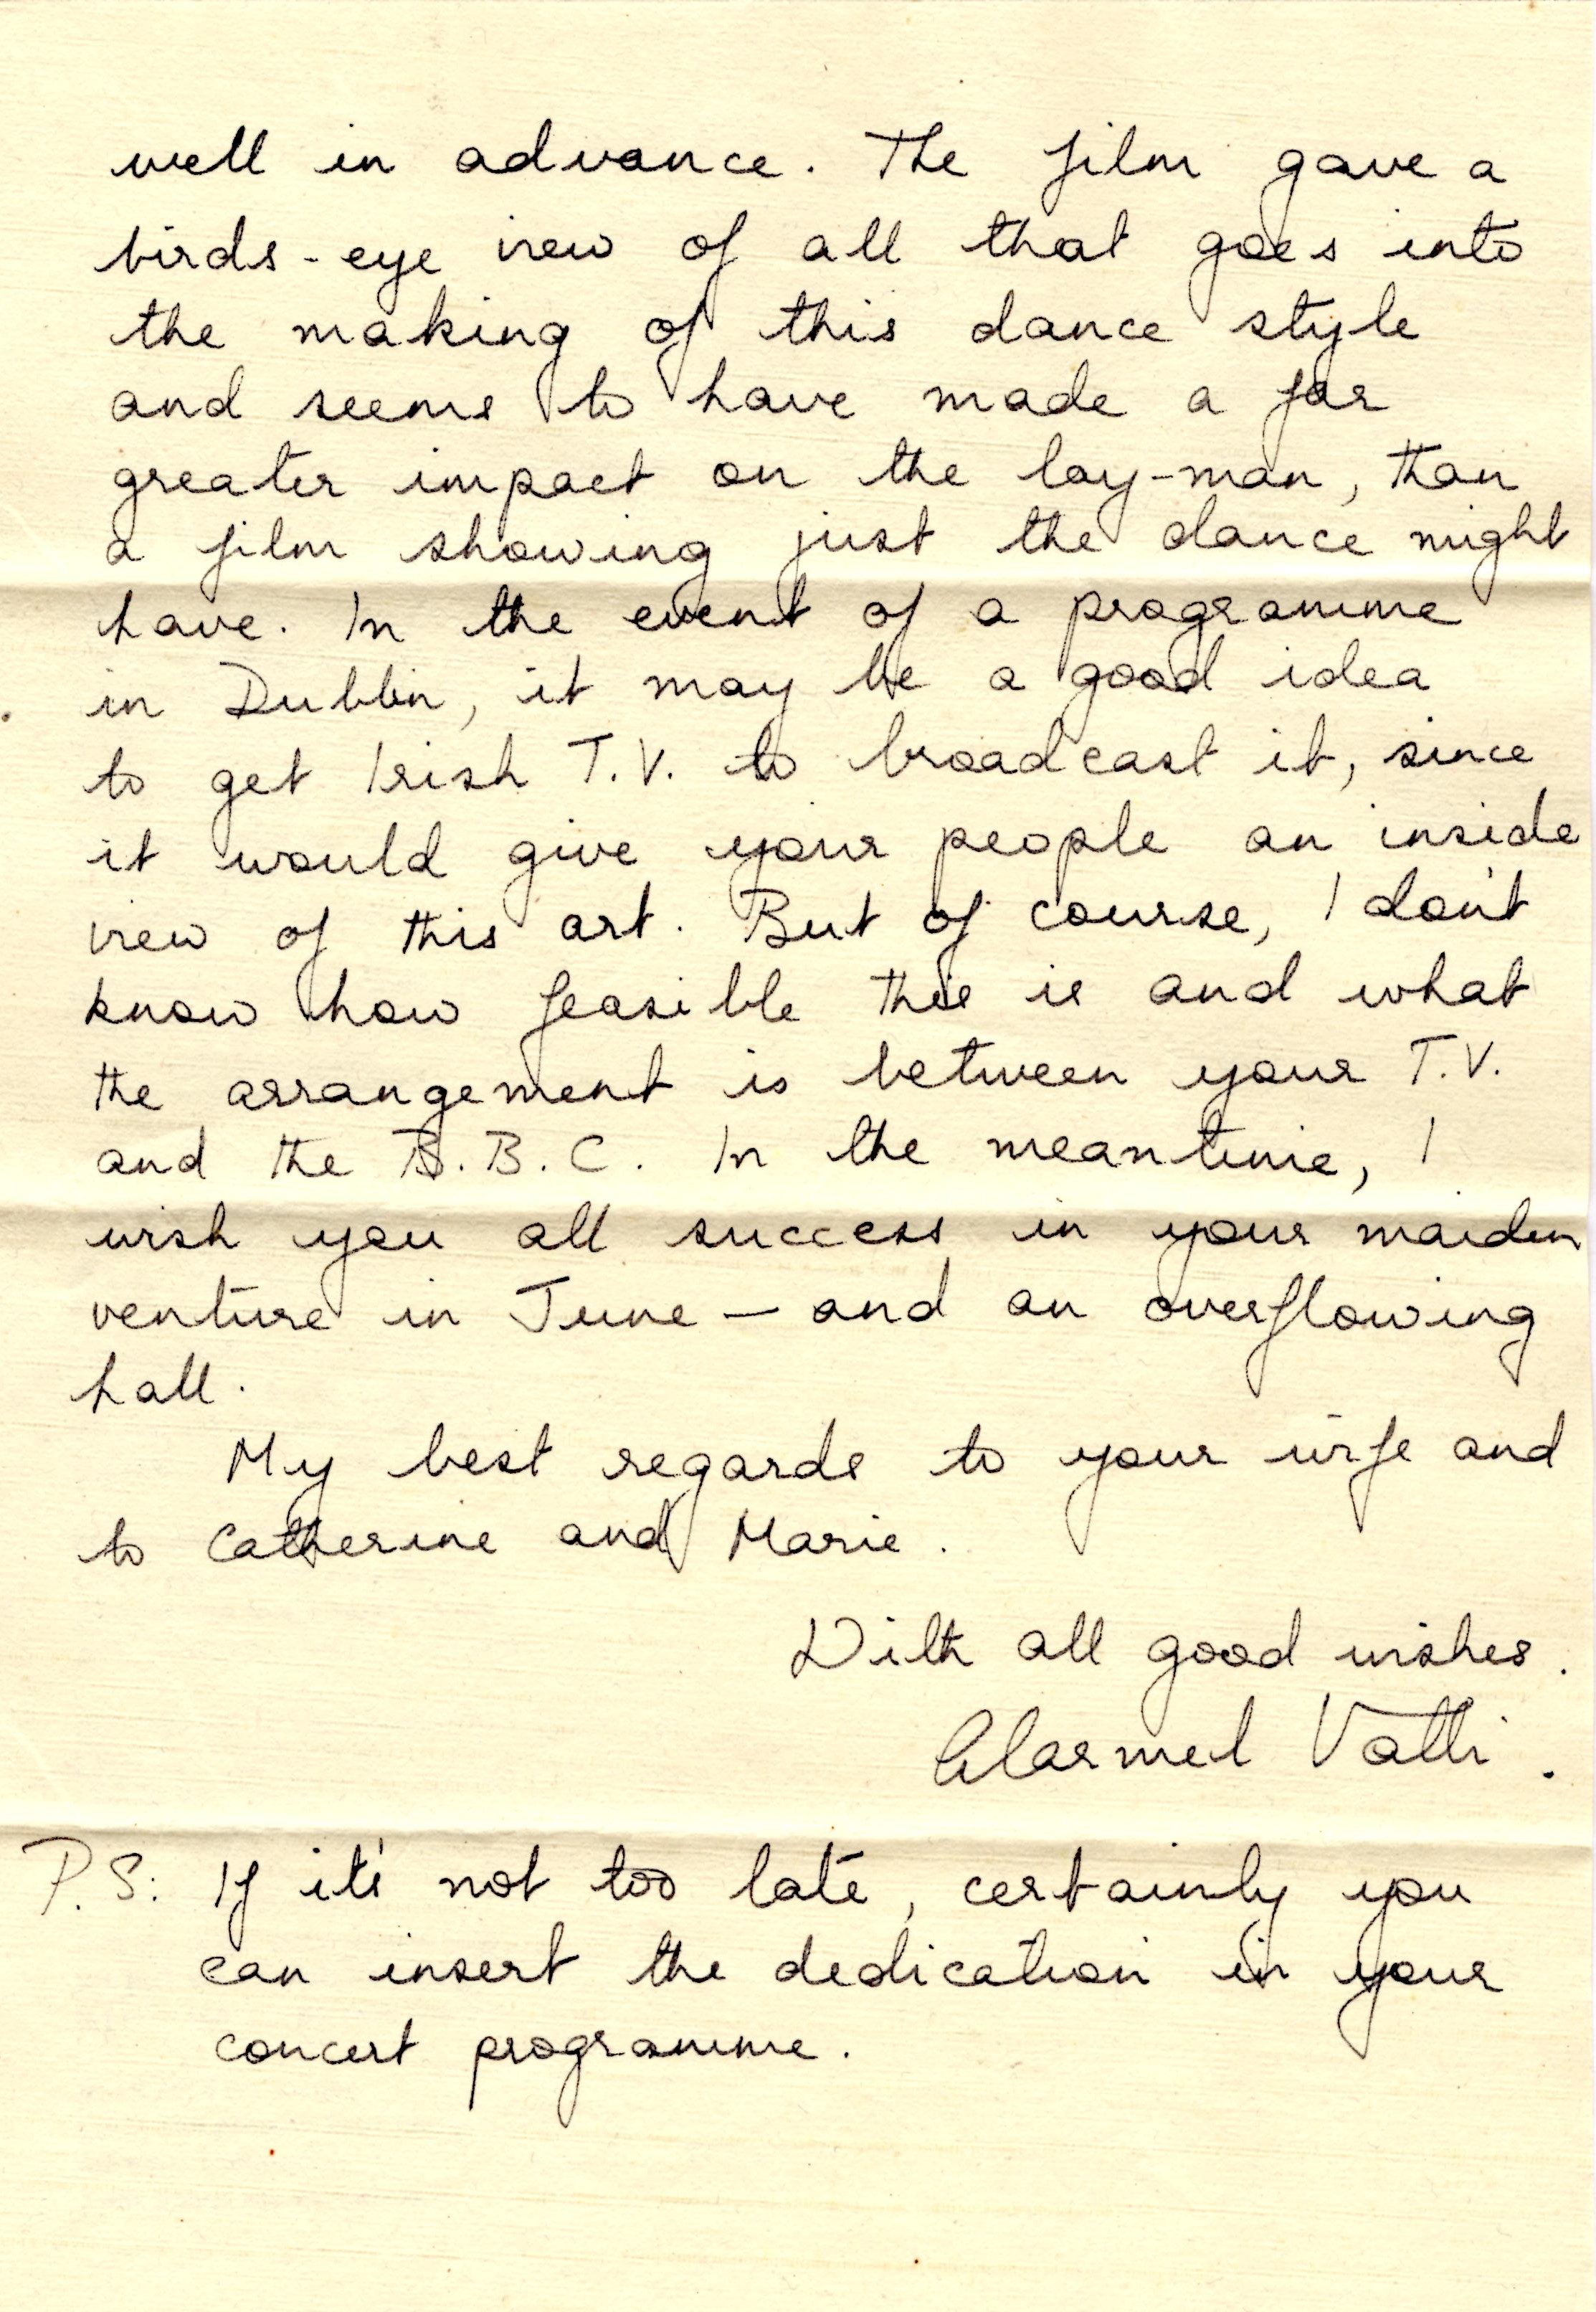 well in advance. The film gave a
birds-eye view of all that goes into
the making of this dance style
and seems to have made a far
greater impact on the lay-man, than
a film showing just the dance might
have. In the event of a programme
in Dublin, it may be a good idea
to get Irish T.V. to broadcast it, since
it would give your people an inside
view of this art. But of course, I don't
know how feasible this is and what
the arrangement is between your T.V.
and the B.B.C. In the meantime, I
wish you all success in your maiden
venture in June – and an overflowing
hall.
My best regards to your wife and
to Catherine and Marie.
With all good wishes.
Alarmel Valli.
P.S: If it's not too late, certainly you
can insert the dedication in your
concert programme.